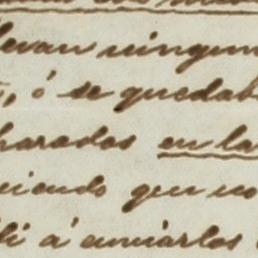 levan ningun
, ó se quedab
harados en la
iendo que no
li á enviarlos